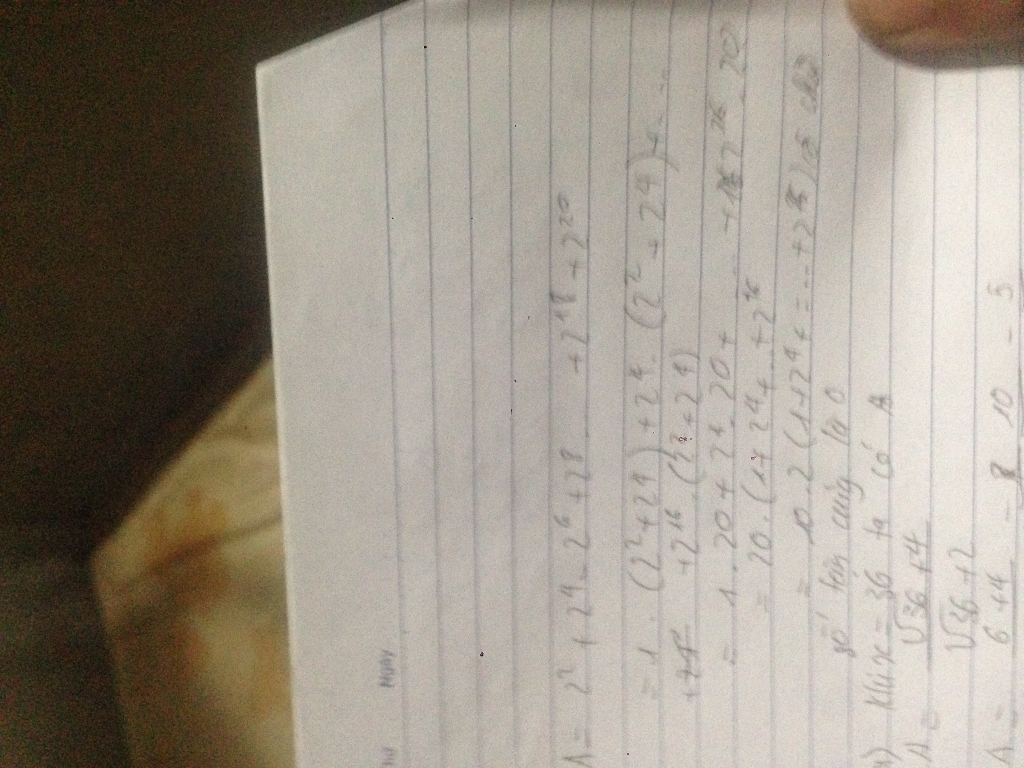 Thứ Ngày
A = 2² + 2⁴ + 2⁶ + 2⁸ + 2¹⁸ + 2²⁰
= 1 . (2² + 2⁴) + 2⁴ . (2² + 2⁴) + ..
+ 2¹⁶ . (2² + 2⁴)
= 1 . 20 + 2⁴ . 20 + ... + 2¹⁶ . 20
= 20 . (1 + 2⁴ + .. + 2¹⁶
= 10 . 2 (1 + 2⁴ + = ... + 2¹⁶) có chữ
số tận cùng là 0
a) Khi x = 36 ta có A
A = √36 + 4
√36 + 2
A = 6 + 4 = 10 = 5
8